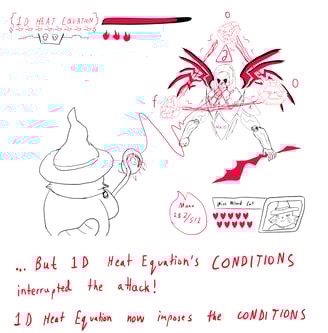 {1D HEAT EQUATION}
0
2
0
f
Mana
282/512
Miss Wizard Cat
... But 1D Heat Equation's CONDITIONS
interrupted the attack!
1D Heat Equation now imposes the CONDITIONS